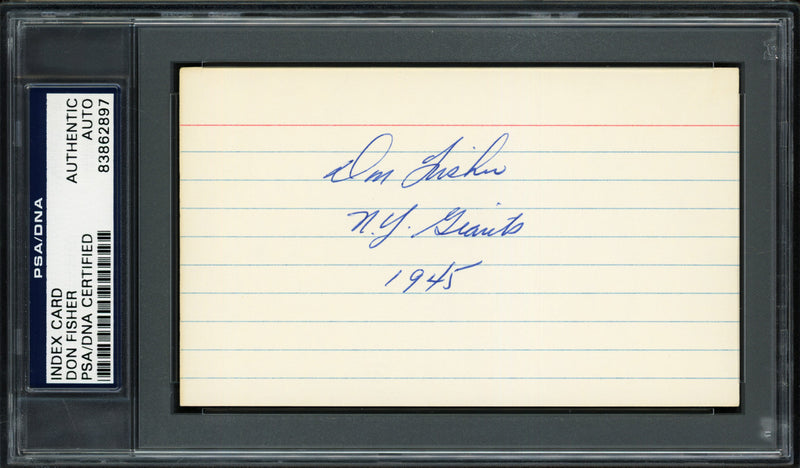 PSA/DNA
INDEX CARD
DON FISHER
PSA/DNA CERTIFIED
AUTHENTIC
AUTO
83862897
Don Fisher
N.Y. Giants
1945